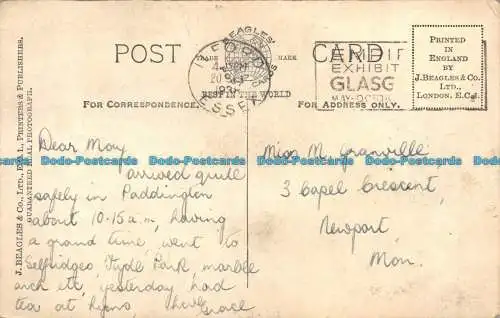 POST CARD
BEAGLES'
TRADE MARK
BEST IN THE WORLD
ILFORD
20 SEP
1938
ESSEX
EMPIRE
EXHIBIT
GLASG
MAY-OCT
PRINTED
IN
ENGLAND
BY
J. BEAGLES & CO.
LTD.,
LONDON, E.C.1.
FOR CORRESPONDENCE.
FOR ADDRESS ONLY.
J. BEAGLES & CO., LTD., E.C.1., PRINTERS & PUBLISHERS.
GUARANTEED REAL PHOTOGRAPH.
Dear May
arrived quite
safely in Paddington
about 10.15 a.m, having
a grand time, went to
Selfridges, Hyde Park, marble
arch etc, yesterday had
tea at Lyons,
Grace
Miss M. Granville
3 Capel Crescent,
Newport,
Mon.
Dodo-Postcards Dodo-Postcards Dodo-Postcards
Dodo-Postcards Dodo-Postcards Dodo-Postcards
Dodo-Postcards Dodo-Postcards Dodo-Postcards
Dodo-Postcards Dodo-Postcards Dodo-Postcards